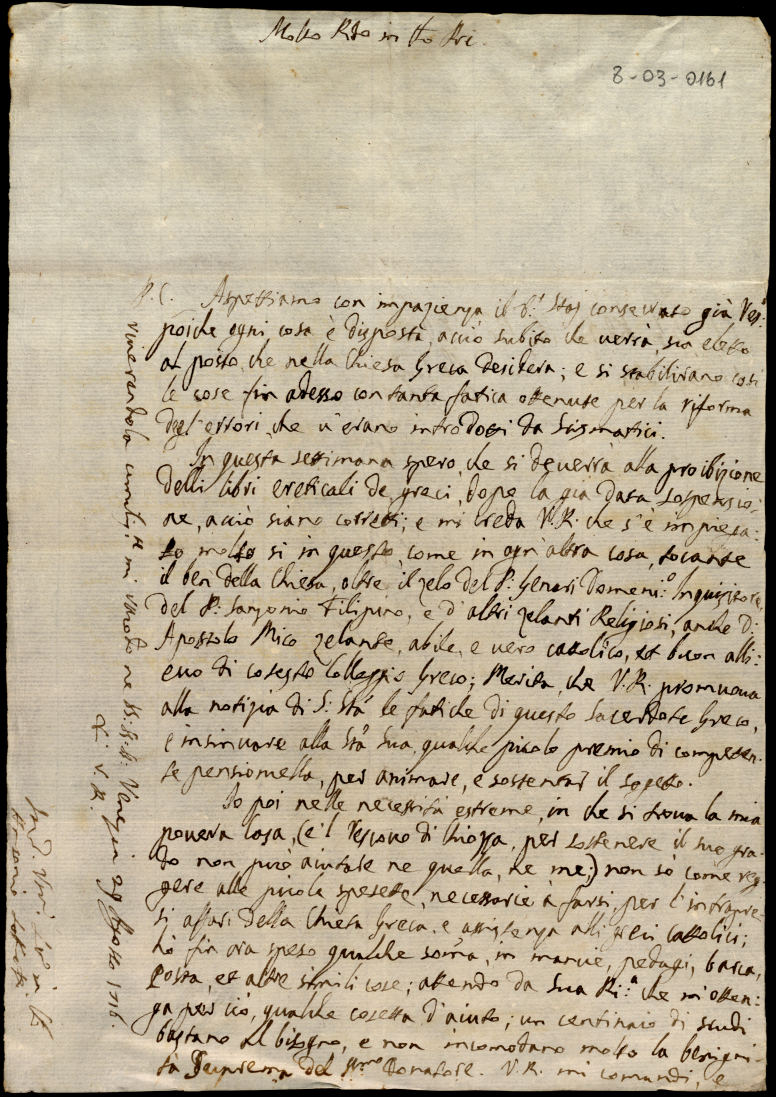 Molto Rdo in Xto Pri.
8-03-0161
P.C. Aspettiamo con impazienza il Sr Stai consecrato già Vesº
poiche ogni cosa è disposta, acciò subito che verrà, sia eletto
al posto, che nella Chiesa Greca desidera; e si stabiliranno così
le cose fin adesso con tanta fatica ottenute per la riforma
degl'errori, che v'erano introdotti da Scismatici.
In questa settimana spero, che si devenerrà alla proibizione
delli libri ereticali de greci, dopo la già data sospensio:
ne, acciò siano corretti; e mi creda V.R. che s'è impiega:
to molto sì in questo, come in ogn'altra cosa, toccante
il ben della Chiesa, oltre il zelo del P: Generi Domeni:º Inquisitore,
del P: Sanzonio Filipino, e d'altri zelanti Religiosi, anche D:
Apostolo Mico zelante, abile, e vero cattolico, et buon alli:
evo di cotesto Colleggio Greco; Merita, che V.R. promuova
alla notizia di S: Stà le fatiche di questo Sacerdote Greco,
e insinuare alla Stà Sua, qualche picolo premio di competen-
te pensionella, per animare, e sostentar il sogetto.
Io poi nelle necessità estreme, in che si trova la mia
povera Casa, (e'l Vescovo di Chiozza, per sostenere il suo gra-
do non può aiutare ne quella, ne me;) non sò come reg-
gere alle picole spesette, necessarie à farsi, per l'intrapre-
si affari della Chiesa Greca, e assistenza alli Greci Cattolici;
hò fin ora speso qualche soma, in mancie, pedagi, barca,
Posta, et altre simili cose; attendo da Sua Ri:ª che m'otten-
ga per ciò, qualche cosetta d'aiuto; un centinaio di scudi
bastano al bisogno, e non incomodano molto la benigni-
tà Suprema del Ssmo Donatore. V.R. mi comandi, e
riverendola umiligte mi raccdo ne SS. SS. Venezia 29 Agosto 1716.
Di V. R.
Ind. in Xto
Antonio